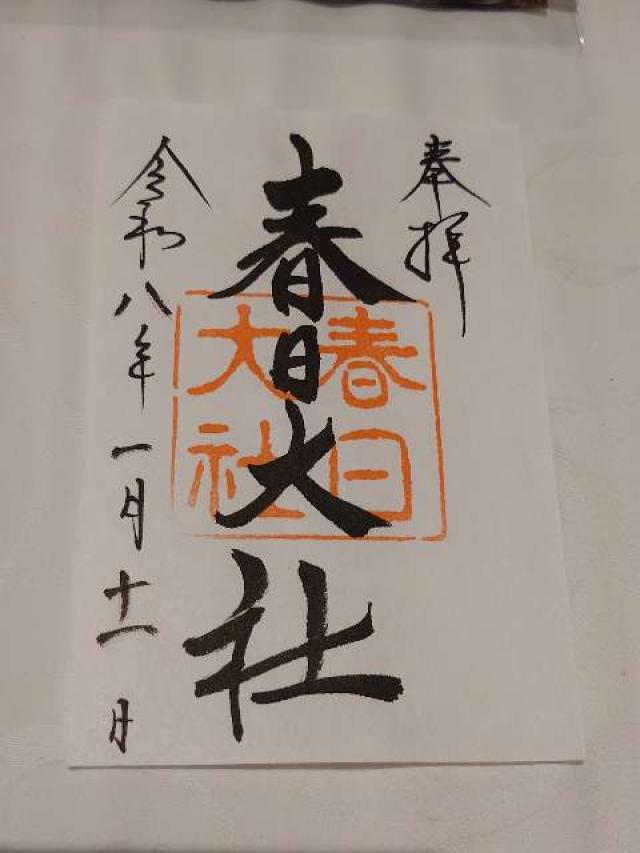 奉拝
春日大社
春日
大社
令和八年一月十一日